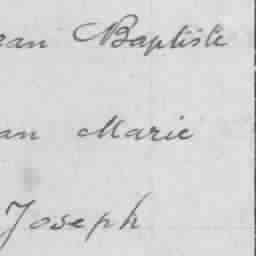 ean Baptiste
an Marie
Joseph